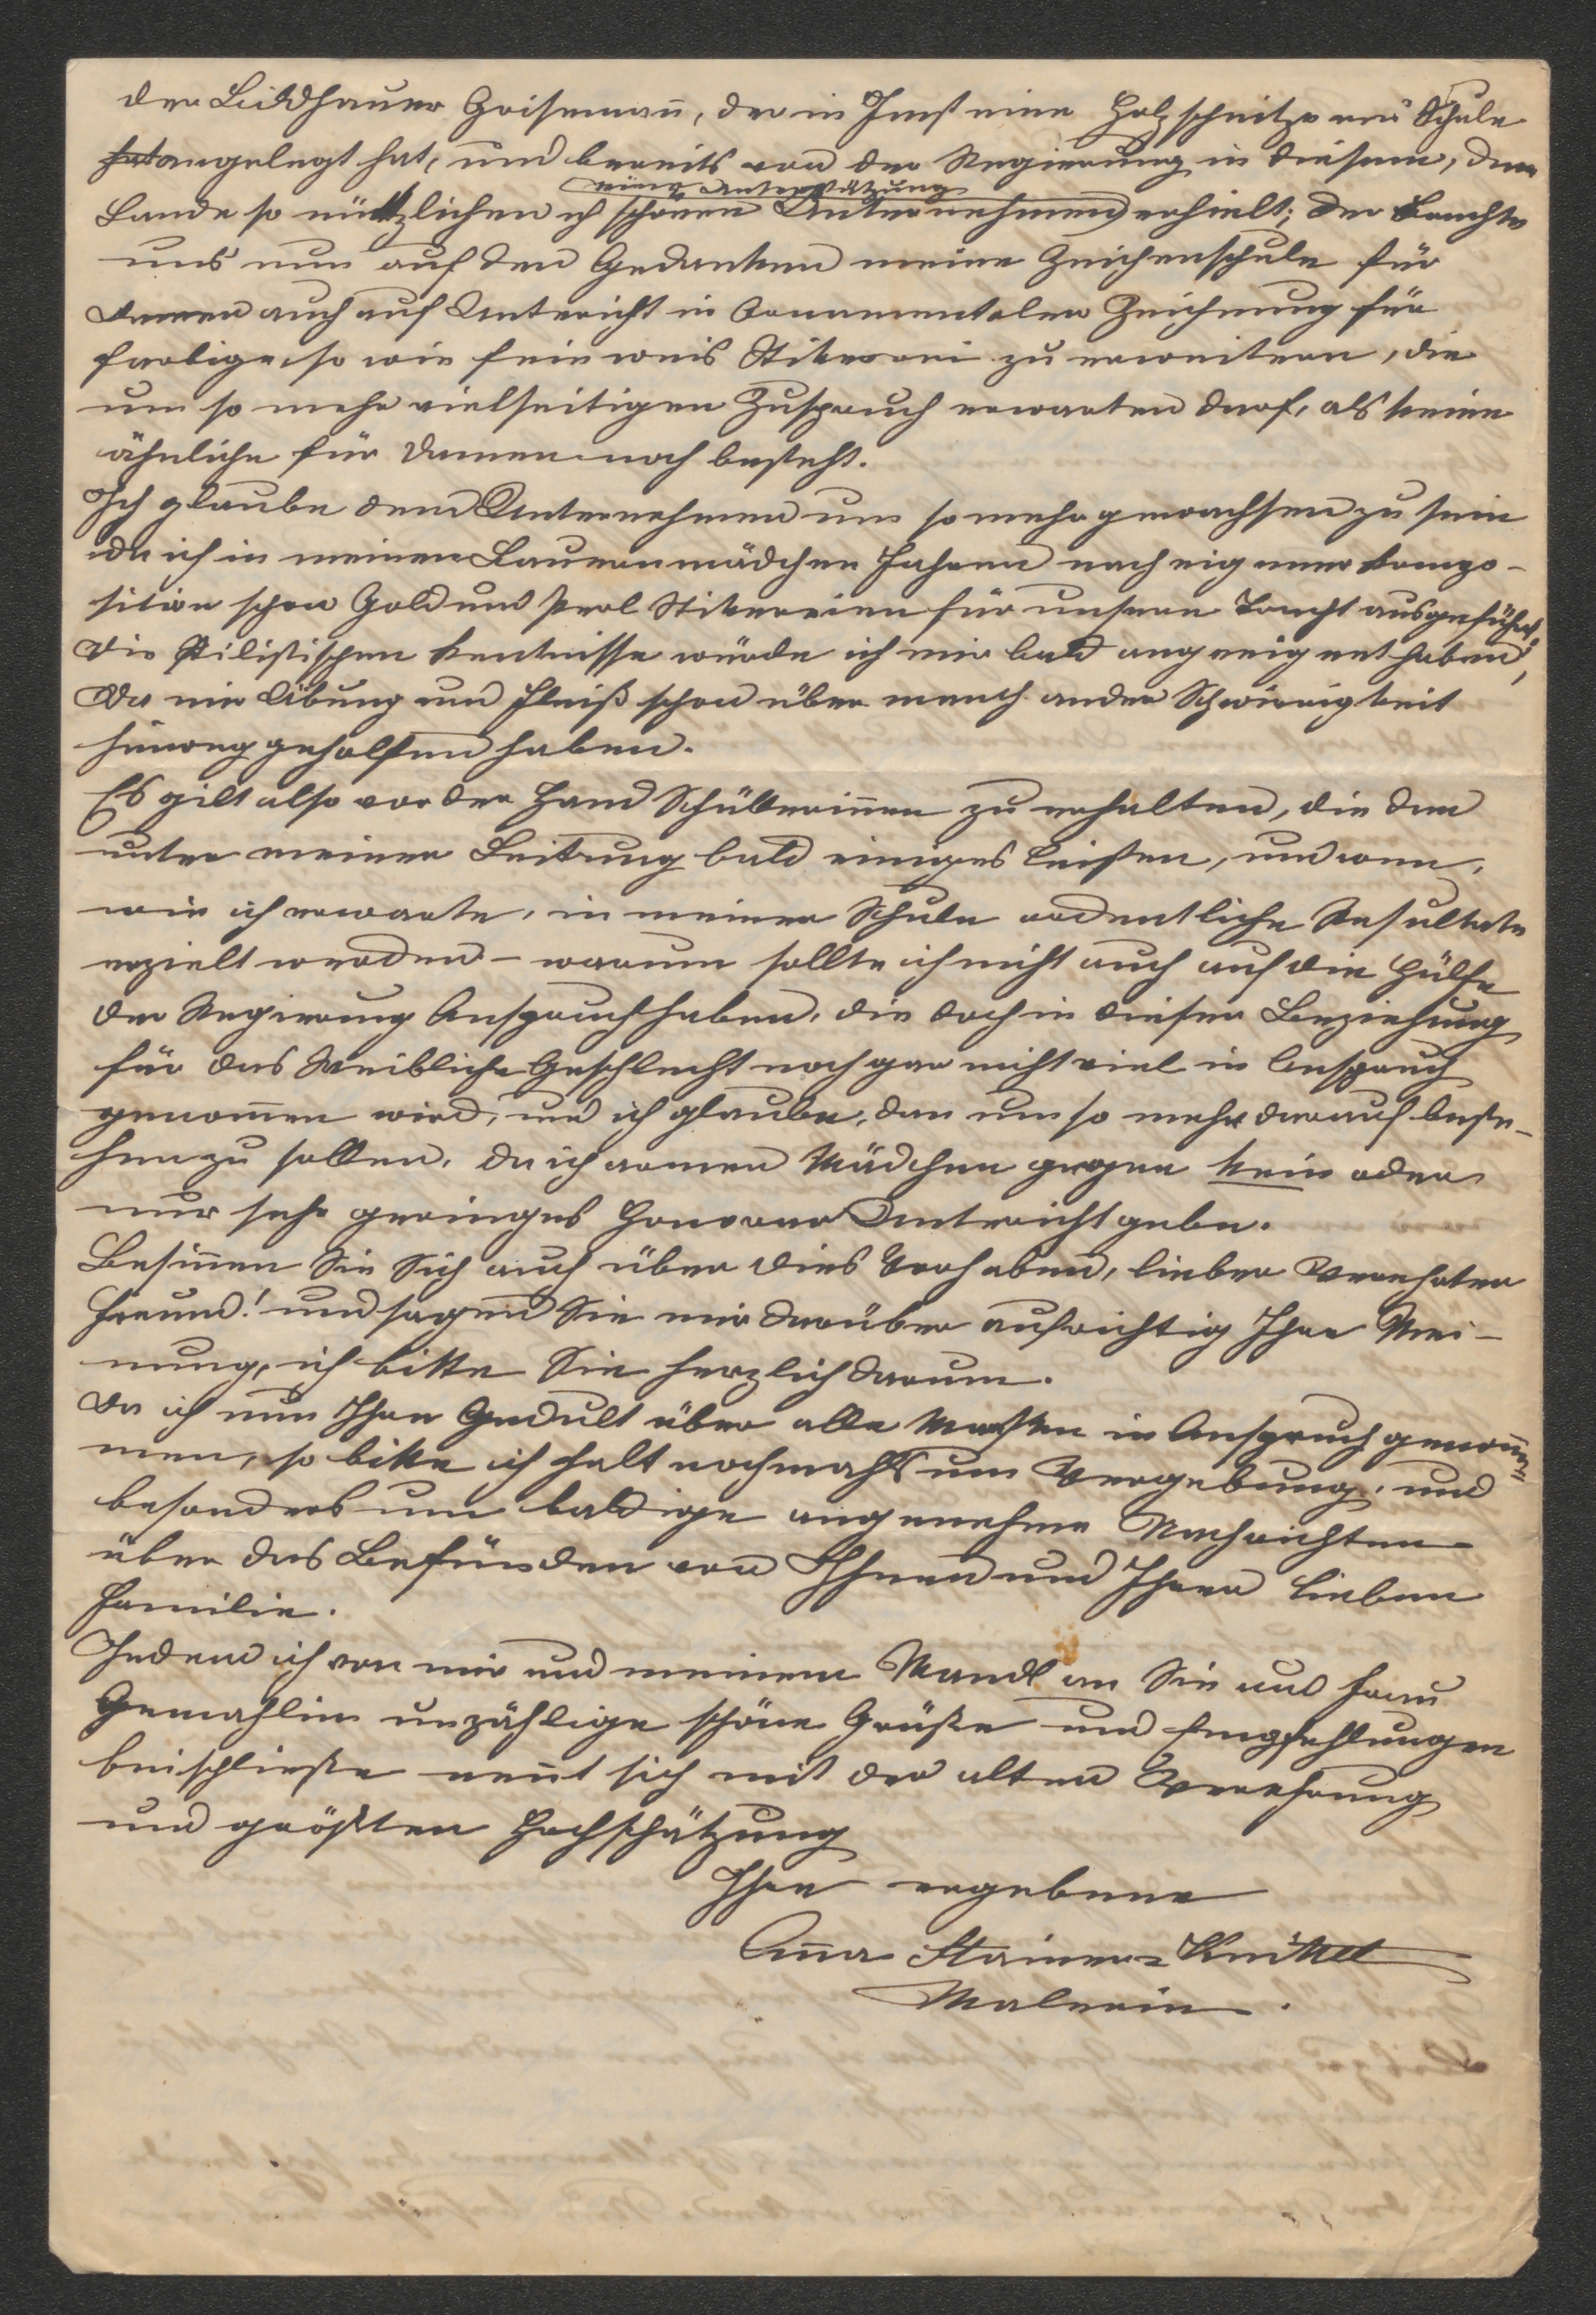 der Bildhauer Grisemañ, der in Imst eine Holzschnitzerei Schule
hat angelegt hat, und bereits von der Regierung in diesem, dem
eine Unterstützung
Lande so nützlichen u schönen Unternehmen erhielt; der brachte
uns nun auf den Gedanken meine Zeichenschule für
Damen auch auf Unterricht in Ornamentalen Zeichnung für
farbige so wie fein weis Stikerei zu erweitern, die
um so mehr vielseitigen Zuspruch erwarten darf, als keine
ähnliche für Damen noch besteht.
Ich glaube dem Unternehmen um so mehr gewachsen zu sein
da ich in meinen Bauernmädchen Jahren nach eigener Kompo-
sition schon Gold und Perl Stikereien für unsere Tracht ausgeführt;
die stilistischen Kentnisse würde ich mir bald angeeignet haben,
da mir Übung und Fleiß schon über manch ander Schwierigkeit
hinweg geholfen haben.
Es gilt also vor der Hand Schüllerinen zu erhalten, die dan
unter meiner Leitung bald einiges leisten, und wen,
wie ich erwarte, in meiner Schule ordentliche Resultate
erzielt werden – warum sollte ich nicht auch auf die Hülfe
der Regierung Anspruch haben, die doch in dieser Beziehung
für das Weibliche Geschlecht noch gar nicht viel in Anspruch
genom̄en wird, und ich glaube, dan um so mehr darauf beste-
hen zu sollen, da ich armen Mädchen gegen kein oder
nur sehr geringes Honorar Unterricht gebe.
Besiñen Sie Sich auch über dies Vorhaben, lieber Verehrter
Freund! und sagen Sie mir darüber aufrichtig Ihre Mei-
nung, ich bitte Sie herzlich darum.
Da ich nun Ihre Gedult über alle Massen in Anspruch genom̄en
men, so bitte ich halt nochmahls um Vergebung, und
besonders um baldige angenehme Nachrichten
über das Befünden von Ihnen und Ihrer lieben
Familie.
Indem ich von mir und meinem Mandl an Sie und Frau
Gemahlin unzählige schöne Grüße und Empfehlungen
beischließe neñt sich mit der alten Verehrung
und größten Hochschätzung
Ihre ergebene
Aña Stainer-Knittel
Malerin.